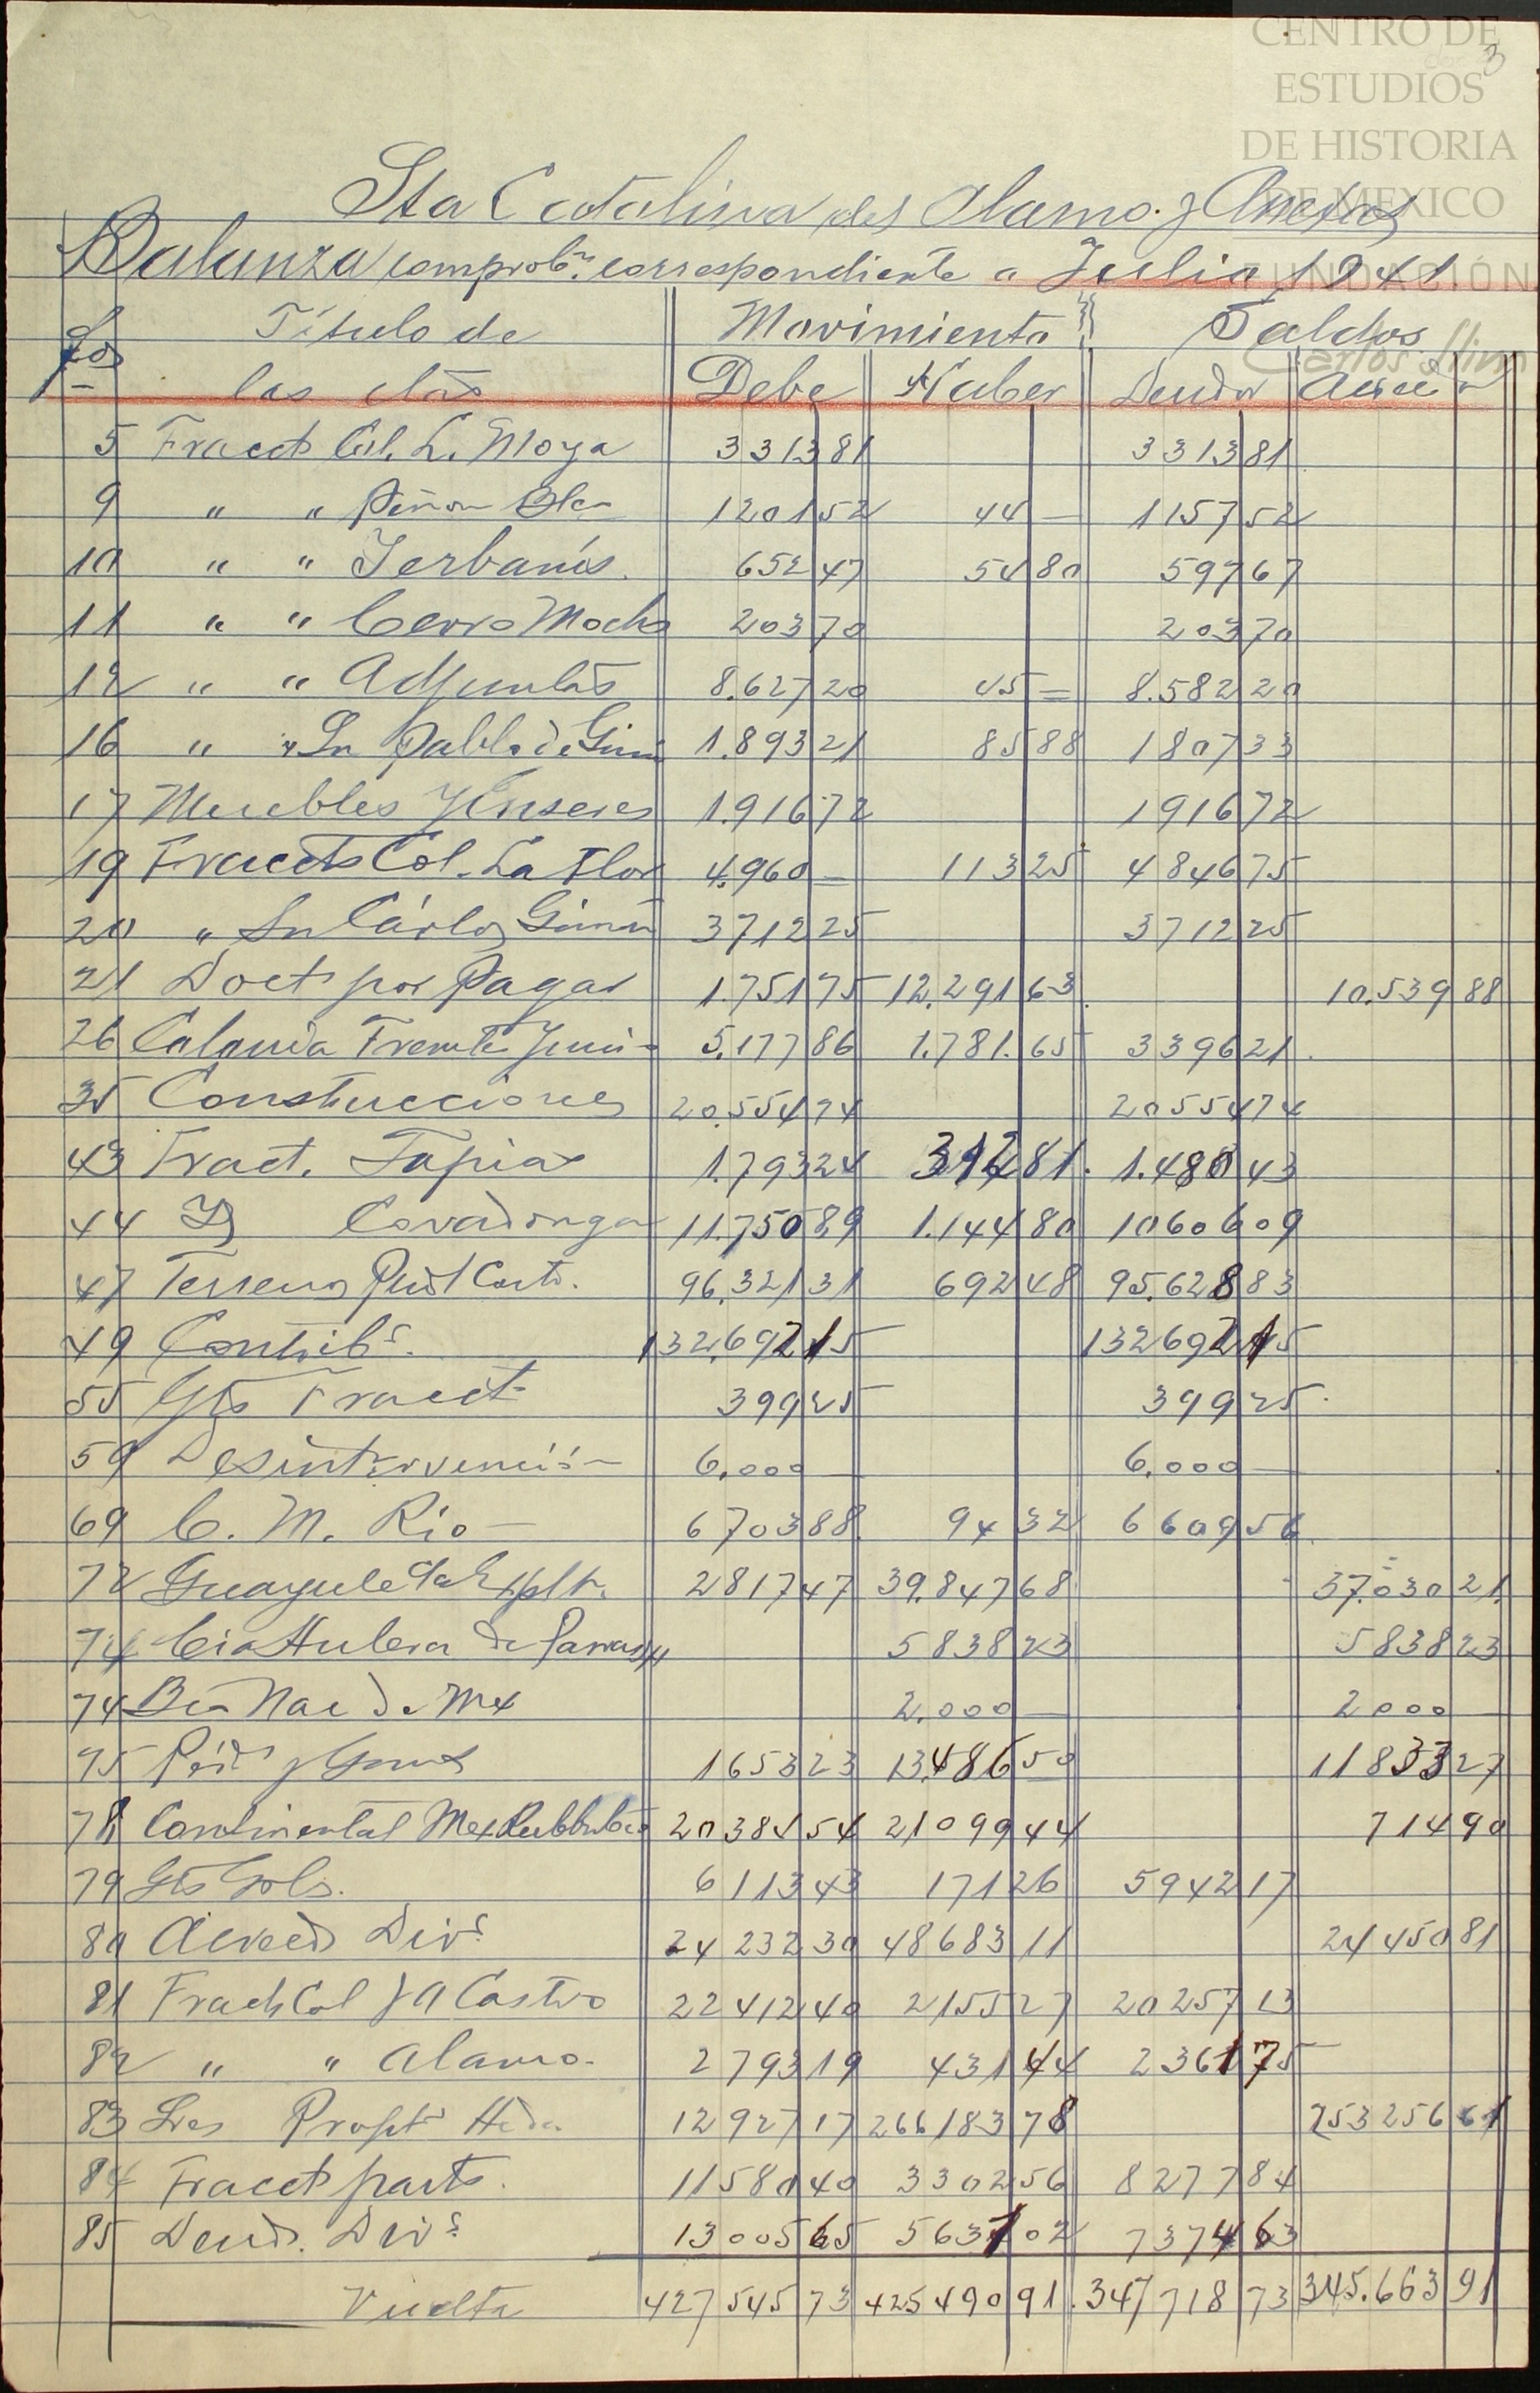 CENTRO DE
ESTUDIOS
DE HISTORIA
DE MEXICO
FUNDACIÓN
Carlos Slim
3
Sta Catalina del Alamo. y Anexos
Balanza comprobn. correspondiente a Julio 1941
Fos Título de Movimiento Saldos
las ctas Debe Haber Deudor Acreedor
5 Fracct Col. L. Moya 3313 81 3313 81
9 " " Peñon Blco 1201 52 44 — 1157 52
10 " " Yerbanís. 652 47 54 80 597 67
11 " " Cerro Mocho 203 70 203 70
12 " " Adjuntas 8.627 20 45 = 8.582 20
16 " " Sn Pablo de Gim 1.893 21 85 88 1807 33
17 Muebles y Enseres 1.916 72 1916 72
19 Fraccts Col. La Flor 4.960 — 113 25 4846 75
20 " Sn Cárlos Gimn 3712 25 3712 25
21 Doct por Pagar 1.751 75 12.291 63 10.539 88
26 Colonia Fremte 5.177 86 1.781.65 3396 21
35 Construcciones 20.554 74 20554 74
43 Fract. Tapias 1.793 24 312 81. 1.480 43
44 Id Covadonga 11.750 89 1.144 80 10606 09
47 Terreno Rust Cost. 96.321 31 692 48 95.628 83
49 Contribs. 132.692 15 132692 15
55 Gts Fracct 399 25 399 25
59 Desintervención 6.000 — 6.000 —
69 C. M. Rio — 6703 88 94 32 6609 56
72 Guayule Explt. 2817 47 39.847 68 37.030 21
74 Cia Hulera de Parras 5838 23 5838 23
74 Bco Nac de Mex 2.000 — 2000 —
75 1653 23 13.486 50 11833 27
78 Continental Mex Rubb 20384 54 21099 44 714 90
79 Gts Gols. 6113 43 171 26 5942 17
80 Acreeds Divs. 24232 30 48683 11 24450 81
81 Fract Col J A Castro 22412 40 2155 27 20257 13
82 " " Alamo. 2793 19 431 44 2361 75
83 Les Propts Hda 12927 17 266183 78 253256 61
84 Fracct parts. 11580 40 3302 56 8277 84
85 Deuds. Divs. 13005 65 5631 02 7374 63
Vuelta 427545 73 425490 91. 347718 73 345.663 91